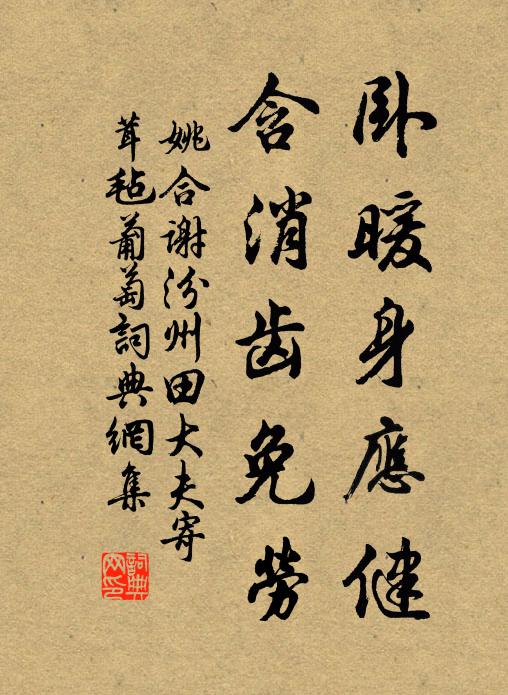 卧暖身應健
含消齿免勞
姚合谢汾州田大夫寄
茸毡葡萄詞典網集
詞典网印